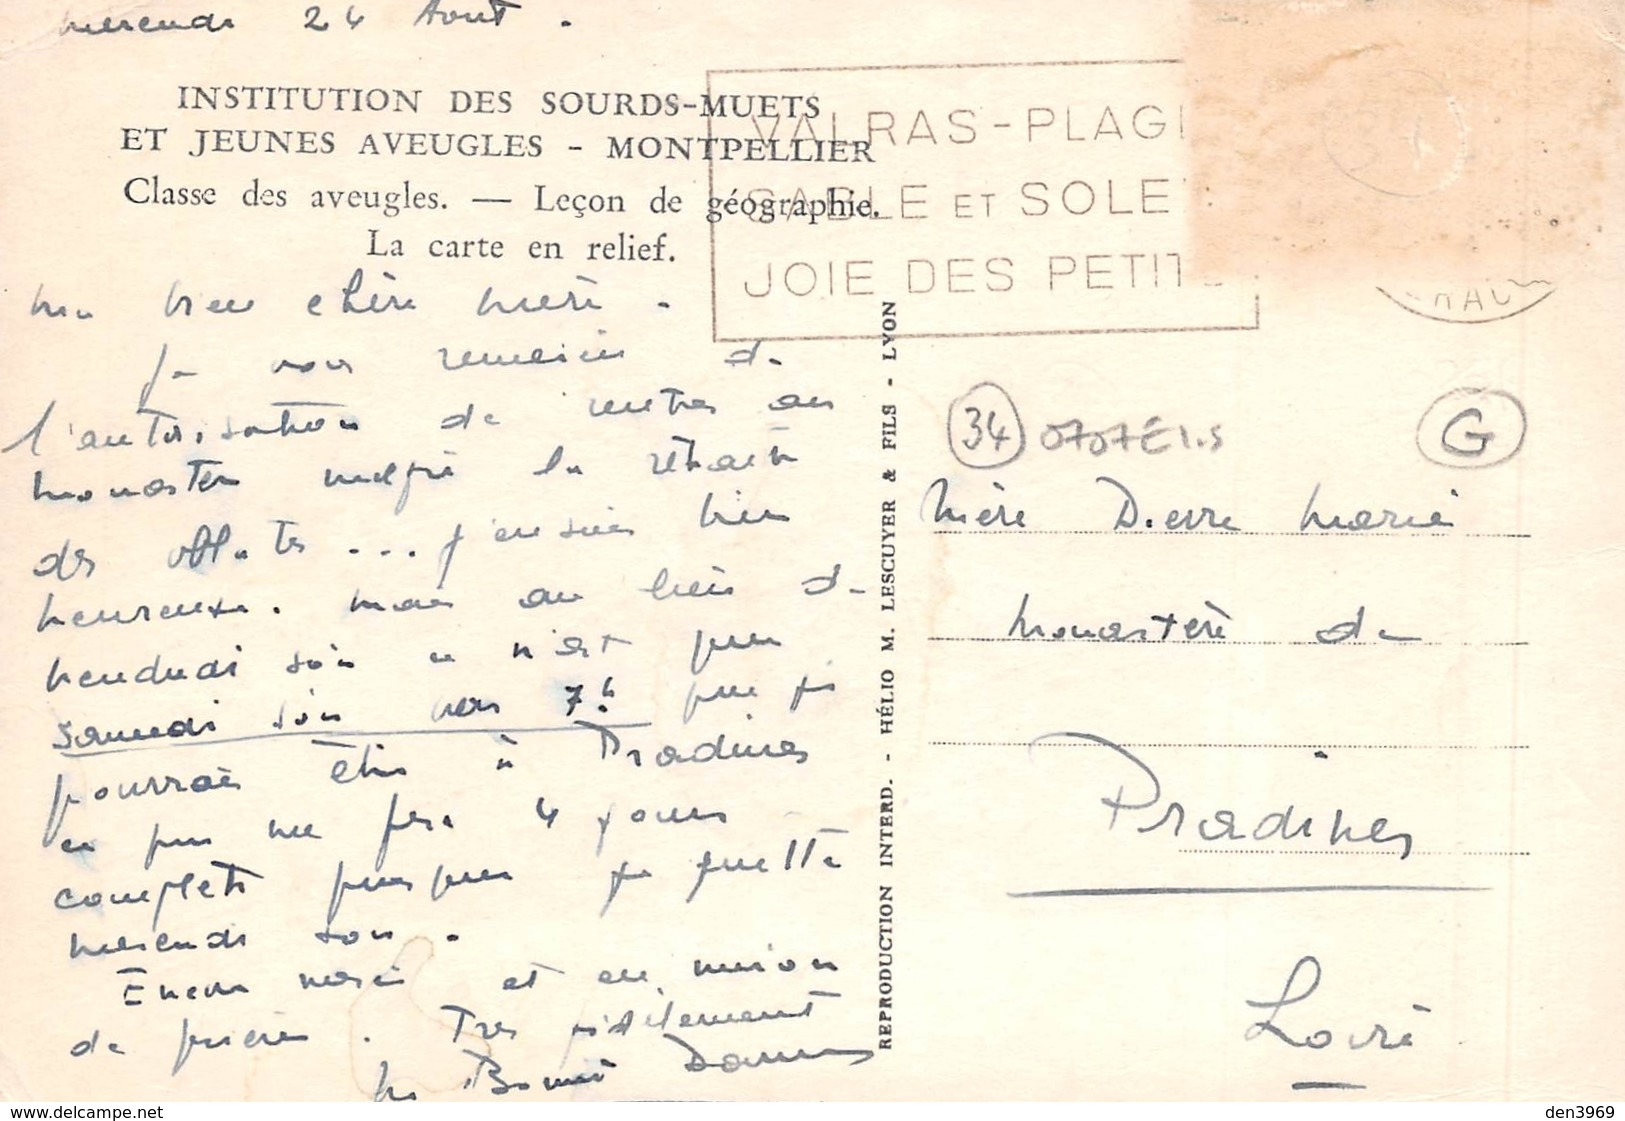 mercredi 24 Aout.
INSTITUTION DES SOURDS-MUETS
ET JEUNES AVEUGLES - MONTPELLIER
Classe des aveugles. — Leçon de géographie.
La carte en relief.
VALRAS-PLAGE
SABLE ET SOLE
JOIE DES PETITS
RAU
Ma bien chère Mère.
Je vous remercie de
l'autorisation de rentrer au
monastère malgré la retraite
des oblates ... j'en suis bien
heureuse. Mais au lieu de
vendredi soir ce n'est que
samedi soir vers 7h que je
pourrai être à Pradines
ce qui me fera 4 jours
complets puisque je quitte
mercredi soir.
Encore merci et en union
de prières. Très filialement
REPRODUCTION INTERD. - HÉLIO M. LESCUYER & FILS - LYON
34
G
Mère Pierre Marie
Monastère de
Pradines
Loire
www.delcampe.net
den3969